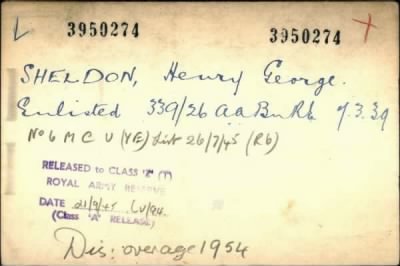 3950274 3950274
SHELDON, Henry George.
Enlisted 339/26 AA Bn RE 7.3.39
No 6 M C U (YE) List 26/7/45 (R6)
RELEASED to CLASS "Z" (T)
ROYAL ARMY RESERVE
DATE 21/9/45
(Class 'A' RELEASE)
Dis: overage 1954